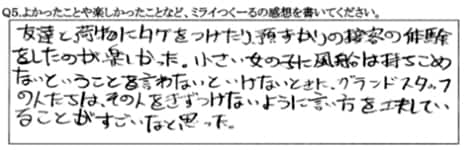 Q5.よかったことや楽しかったことなど、ミライつくーるの感想を書いてください。
友達と荷物にタグをつけたり、預すかりの接客の体験
をしたのが楽しかった。小さい女の子に風船は持ちこめ
ないということを言わないといけないときに、グランドスタッフ
の人たちは、その人をきずつけないように言い方を工夫してい
ることがすごいなと思った。